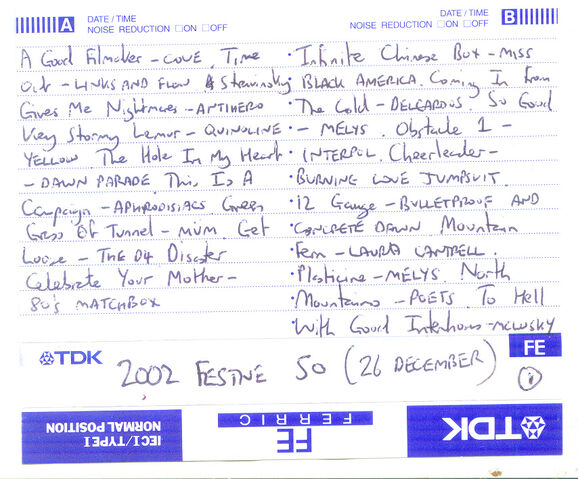 A DATE / TIME
NOISE REDUCTION □ ON □ OFF
DATE / TIME B
NOISE REDUCTION □ ON □ OFF
A Good Filmaker - COVE. Time
Out - LINKS AND FLOW & Straminsky
Gives Me Nightmares - ANTIHERO
Very Stormy Lemur - QUINOLINE
YELLOW. The Hole In My Heart
- DAWN PARADE. This Is A
Campaign - APHRODISIACS. Green
Grass Of Tunnel - MUM. Get
Loose - THE D4. Disaster
Celebrate Your Mother -
80's MATCHBOX
• Infinite Chinese Box - MISS
BLACK AMERICA. Coming In From
• The Cold - DELGADOS. So Good
• - MELYS. Obstacle 1 -
• INTERPOL. Cheerleader -
• BURNING LOVE JUMPSUIT.
• 12 Gauge - BULLETPROOF AND
• CONCRETE DAWN. Mountain
• Fern - LAURA CANTRELL.
• Plasticine - MELYS. North
• Mountains - POETS. To Hell
• With Good Intentions - MCLUSKY
TDK
FE
2002 FESTIVE 50 (26 DECEMBER)
1
IECI/TYPEI
NORMAL POSITION
FE
FERRIC
TDK